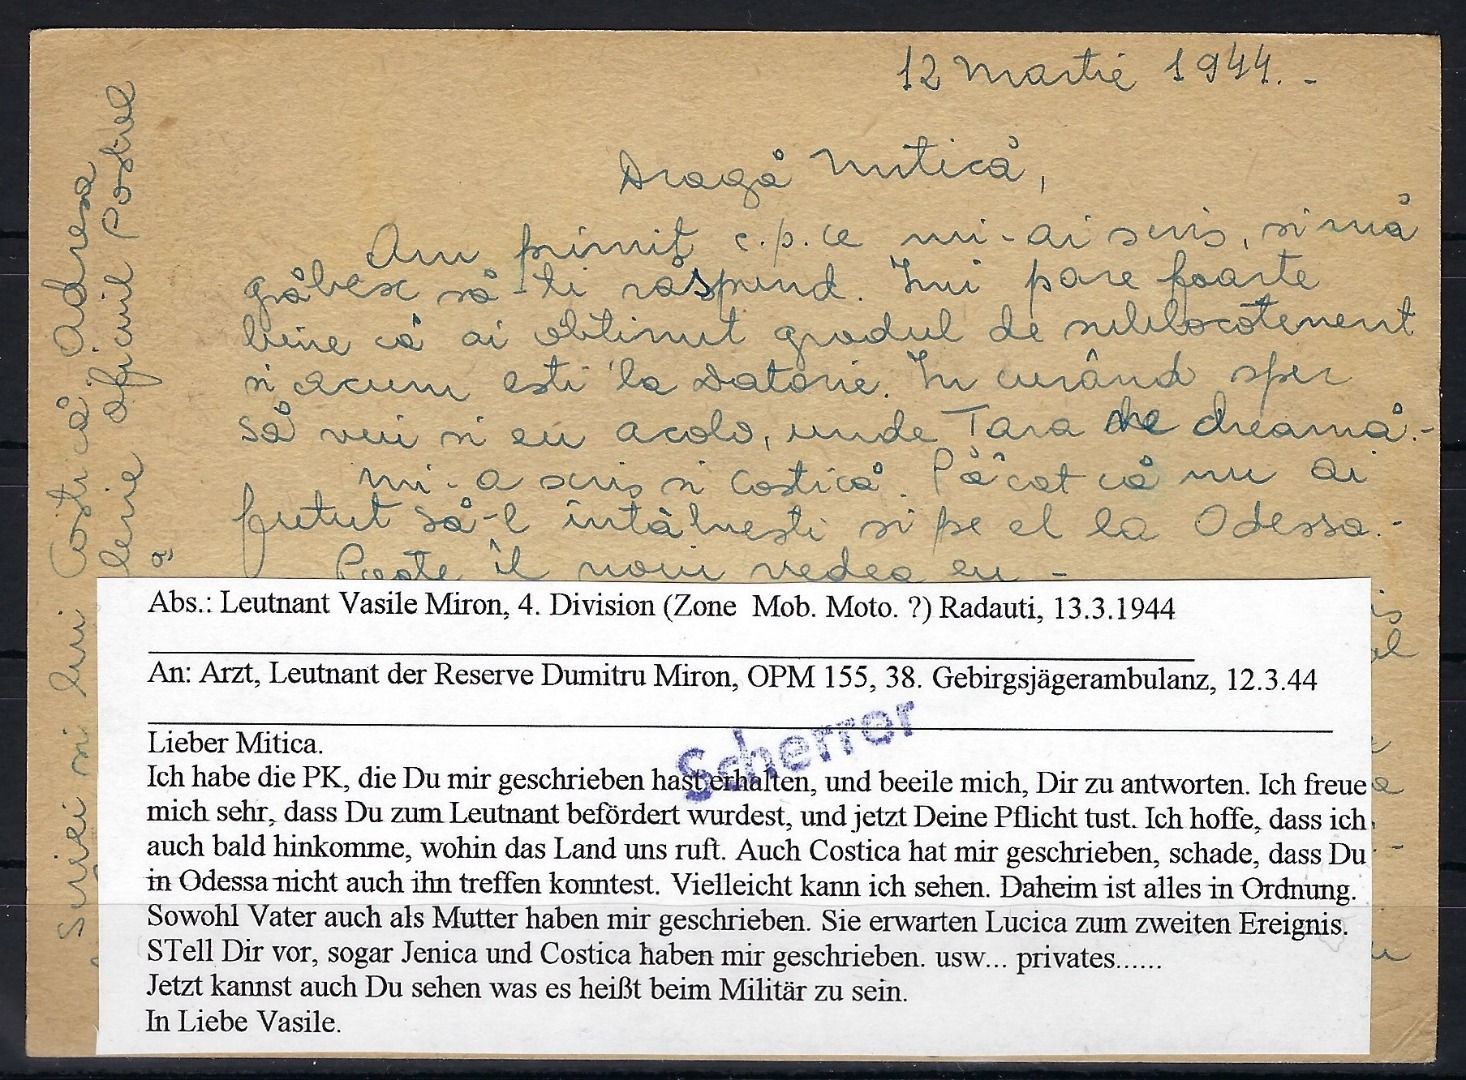 12 Martie 1944. -
Dragă Mitică,
Am primit c.p. ce mi-ai scris, si mă
grăbesc să-ti răspund. Imi pare foarte
bine că ai obtinut gradul de sublocotenent
si acum esti la datorie. In curând sper
să viu si eu acolo, unde Tara ne cheamă.-
Mi-a scris si Costică. Păcat că nu ai
putut să-l întâlnesti si pe el la Odessa.-
Poate îl voiu vedea eu -
Scrisei si lui Costică Adresa
Oficiul Postal
Abs.: Leutnant Vasile Miron, 4. Division (Zone Mob. Moto. ?) Radauti, 13.3.1944
An: Arzt, Leutnant der Reserve Dumitru Miron, OPM 155, 38. Gebirgsjägerambulanz, 12.3.44
Scherrer
Lieber Mitica.
Ich habe die PK, die Du mir geschrieben hast erhalten, und beeile mich, Dir zu antworten. Ich freue
mich sehr, dass Du zum Leutnant befördert wurdest, und jetzt Deine Pflicht tust. Ich hoffe, dass ich
auch bald hinkomme, wohin das Land uns ruft. Auch Costica hat mir geschrieben, schade, dass Du
in Odessa nicht auch ihn treffen konntest. Vielleicht kann ich sehen. Daheim ist alles in Ordnung.
Sowohl Vater auch als Mutter haben mir geschrieben. Sie erwarten Lucica zum zweiten Ereignis.
STell Dir vor, sogar Jenica und Costica haben mir geschrieben. usw... privates......
Jetzt kannst auch Du sehen was es heißt beim Militär zu sein.
In Liebe Vasile.